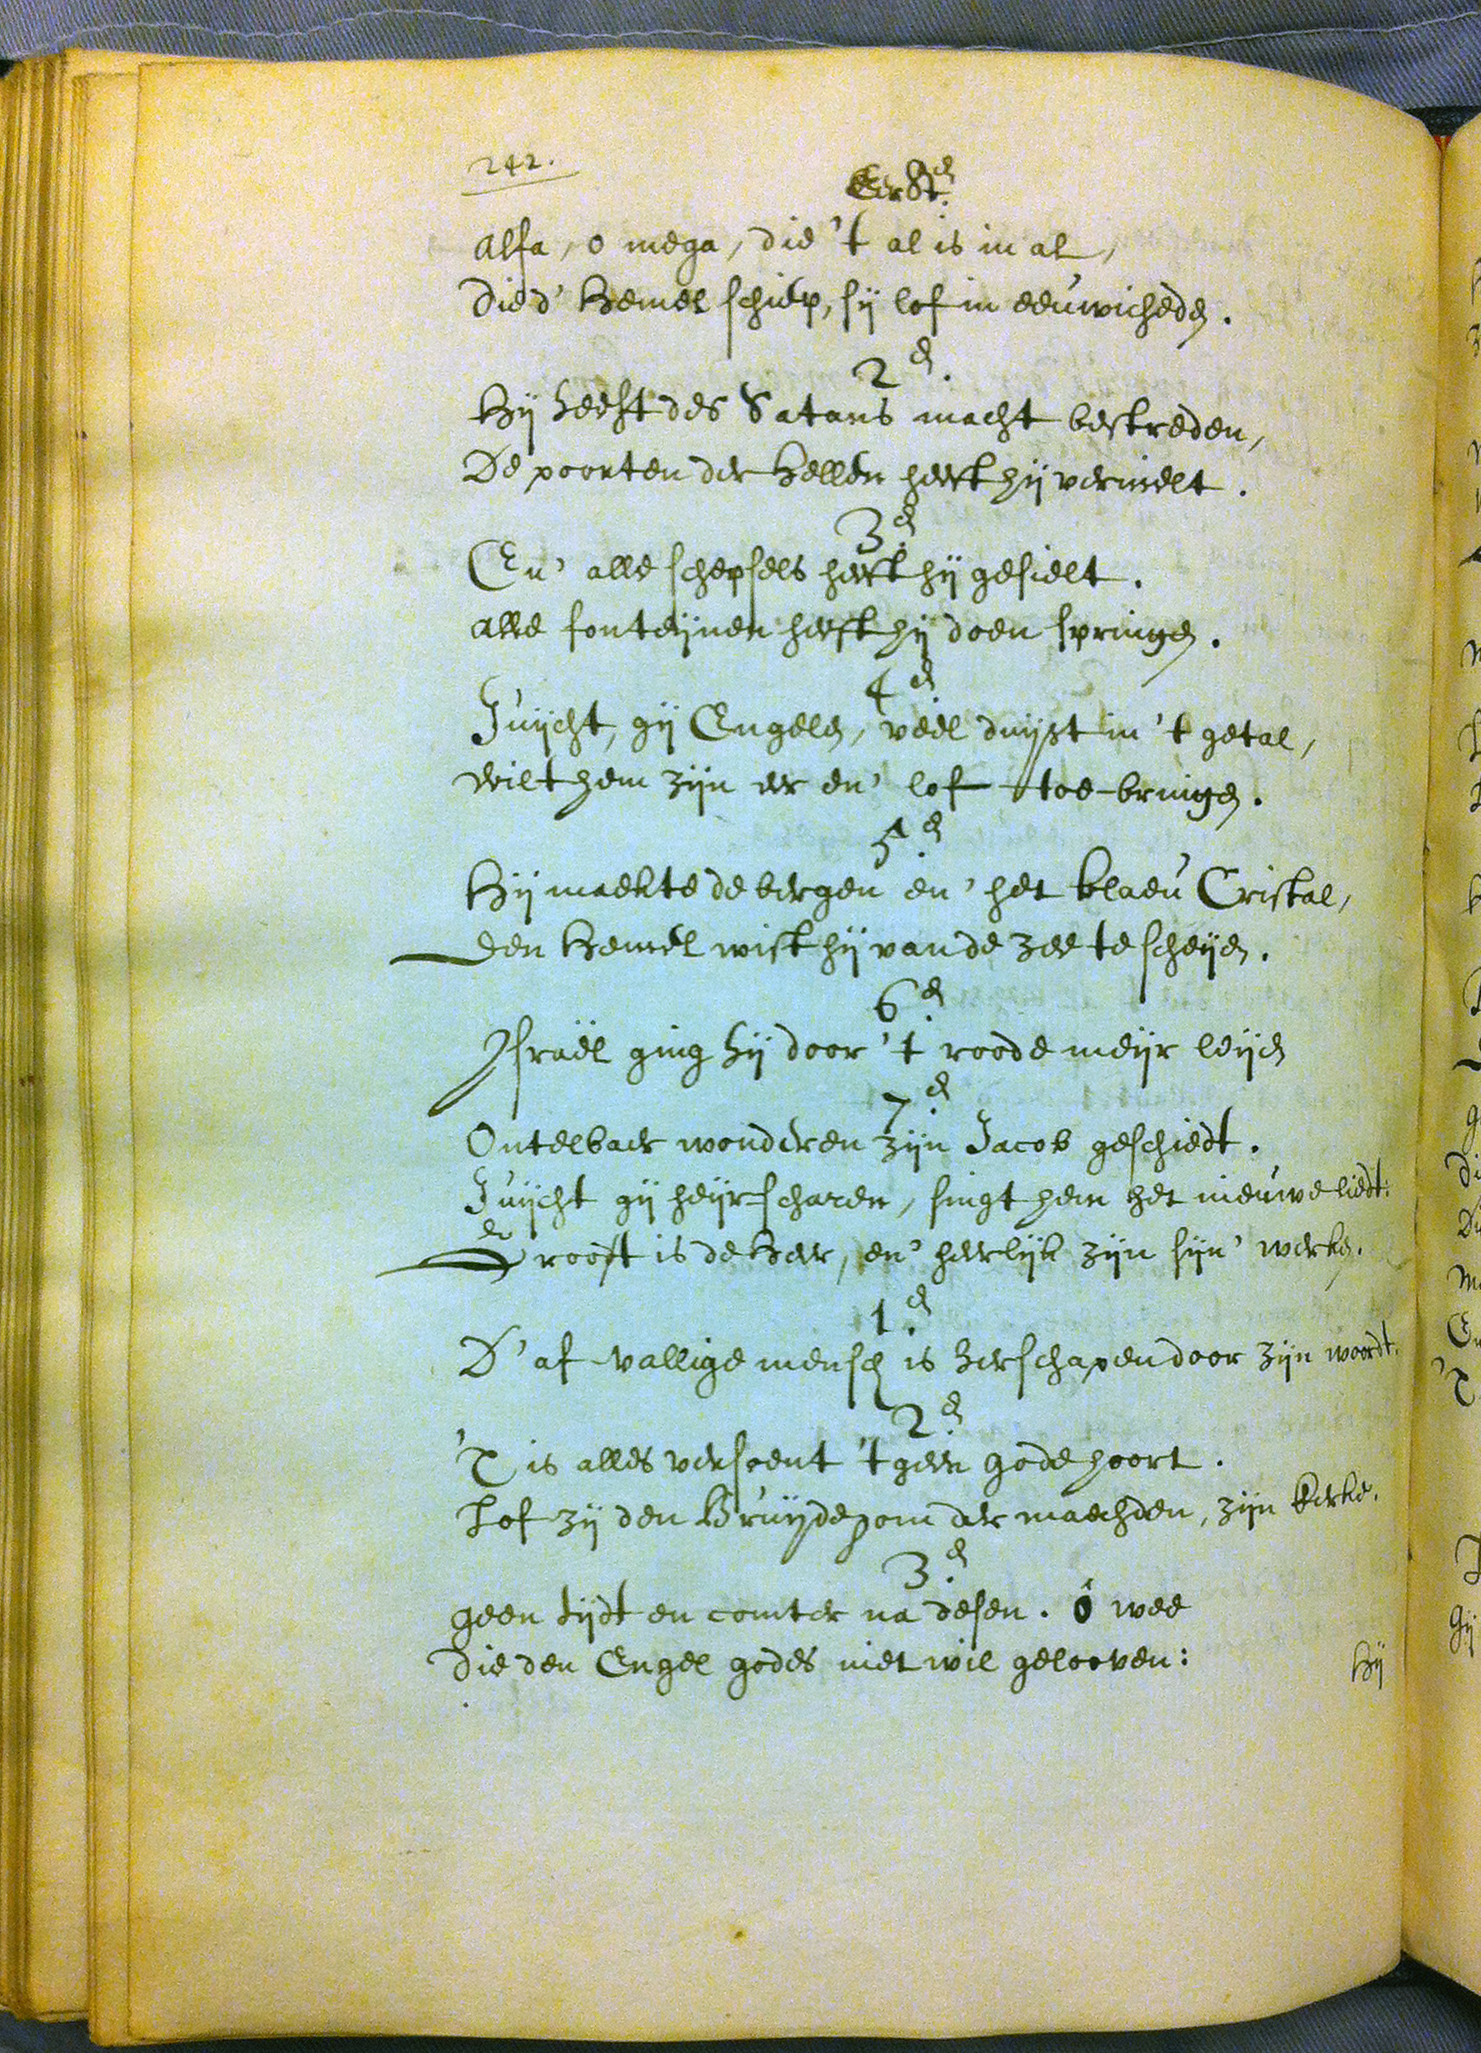 242.
Eerst^en.
Alfa, o mega, die 't al is in al,
Die d' Hemel schiep, sij lof in eeuwichedē.
2^en.
Hij heeft des Satans macht bestreden,
De poorten der Hellen heeft hij vernielt.
3^en.
En' alle schepsels heeft hij gesielt.
Alle fonteijnen heeft hij doen springē.
4^en.
Juijcht, gij Engelē, veel duijst in 't getal,
Wilt hem zijn eer en' lof toe-bringē.
5^en.
Hij maekte de bergen en' het klaeu Cristal,
Den Hemel wist hij van de zee te scheijē.
6^en.
Israël ging hij door 't roode meijr leijē
7^en.
Ontelbaer wonderen zijn Jacob geschiedt.
Juijcht gij heijr-scharen, singt hem het nieuwe liedt:
Groost is de Heer, en' heerlijk zijn sijn' werkē.
1^en.
D' af-vallige mensch is herschapen door zijn woordt.
2^en.
'T is alles versoent 't geen gode hoort.
Lof zij den Bruijdegom der maechden, zijn kerke.
3^en.
geen tijdt en comter na desen. ó wee
Die den Engel godes niet wil gelooven:
Hij